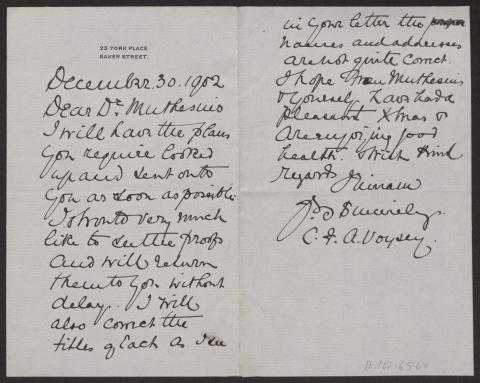 23 YORK PLACE
BAKER STREET.
December. 30. 1902
Dear Dr. Muthesius
I will have the plans
you require looked
up and sent on to
you as soon as possible.
I should very much
like to see the proofs
and will return
them to you without
delay. I will
also correct the
titles of each as I see
in your letter the
names and addresses
are not quite correct.
I hope Frau Muthesius
& yourself have had a
pleasant Xmas &
are enjoying good
health. With kind
regards I remain
Yrs Sincerely.
C. F. A. Voysey.
D 102-6564